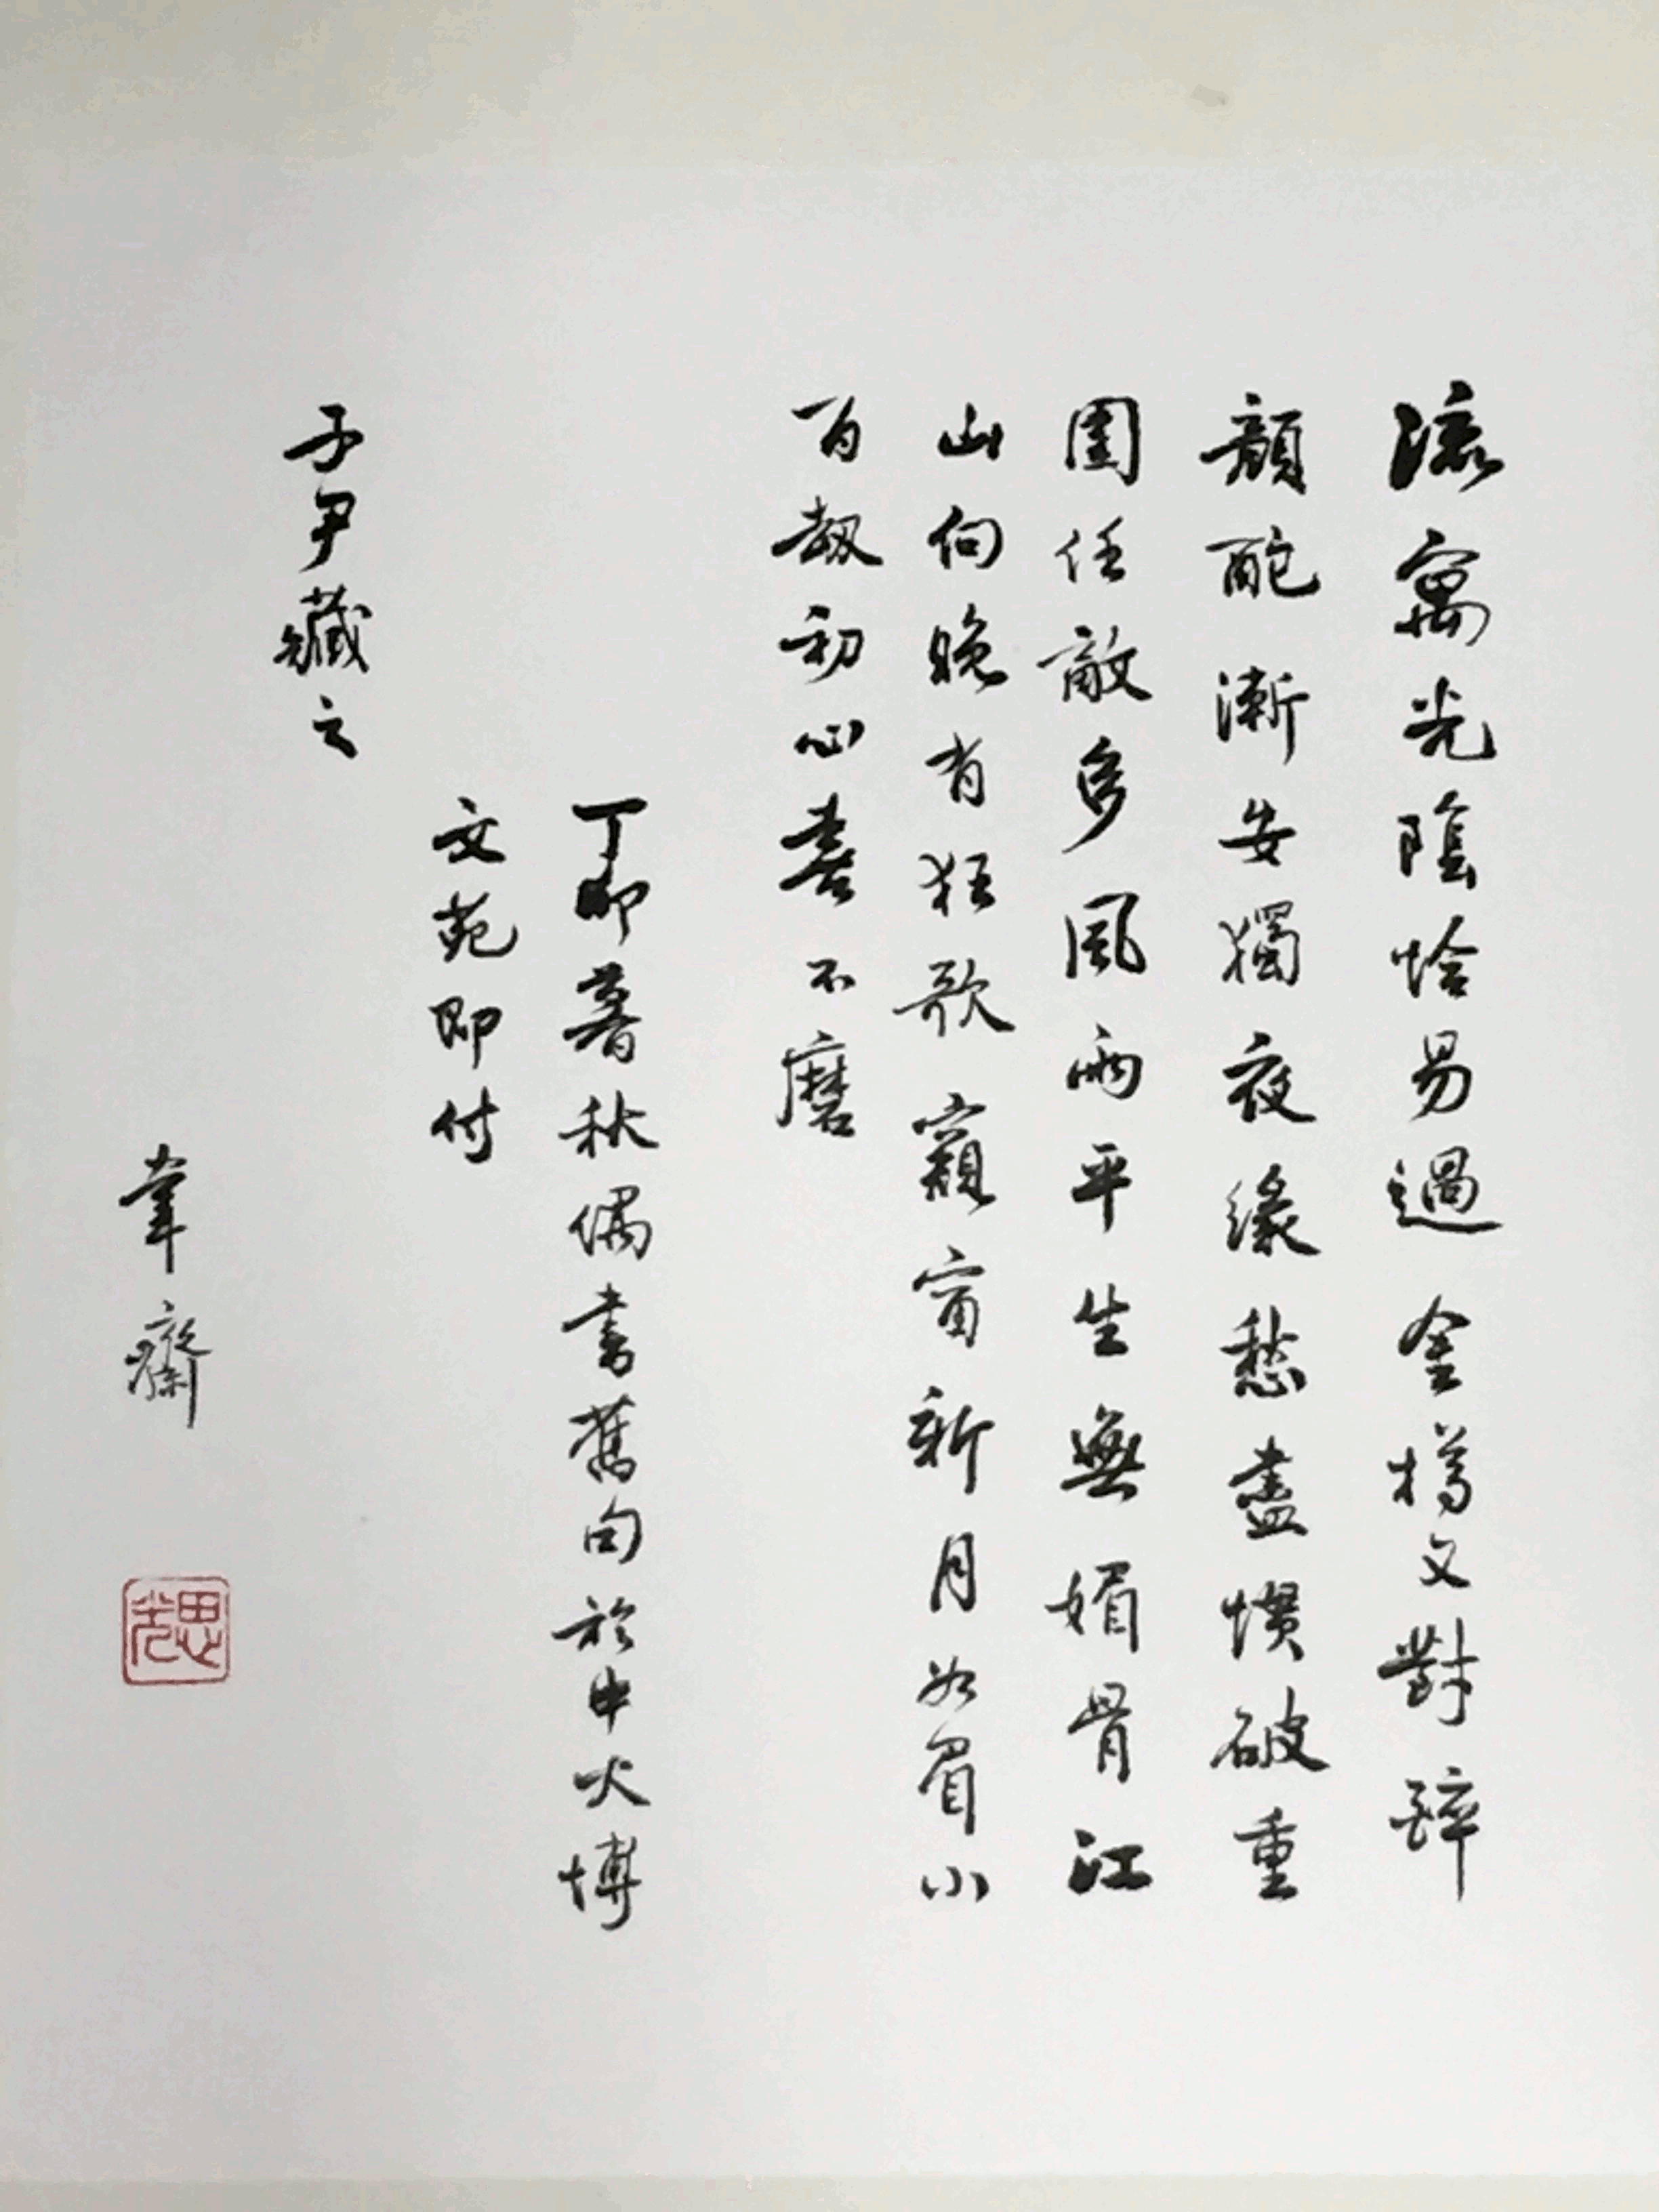 流寓光陰恰易過金樽又對醉
顏酡漸安獨夜緣愁盡慣破重
圍任敵多風雨平生無媚骨江
山向晚有狂歌窺窗新月如眉小
百劫初心喜不磨
丁卯暮秋偶書舊句於中大博
文苑即付
子尹藏之
韋齋